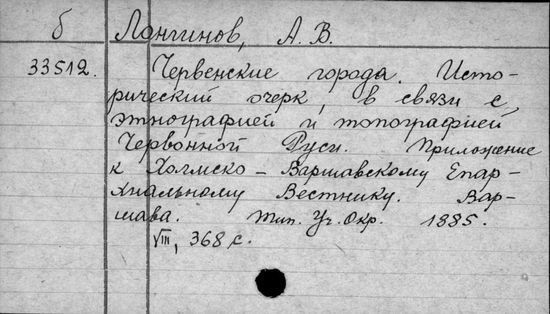 б Лонгинов, А. В.
33512. Червенские города. Исто-
рический очерк, в связи с
этнографией и топографией
Червонной Руси. Приложение
к Холмско-Варшавскому Епар-
хиальному Вестнику. Вар-
шава. Тип. Уч. Окр. 1885.
VIII, 368 с.